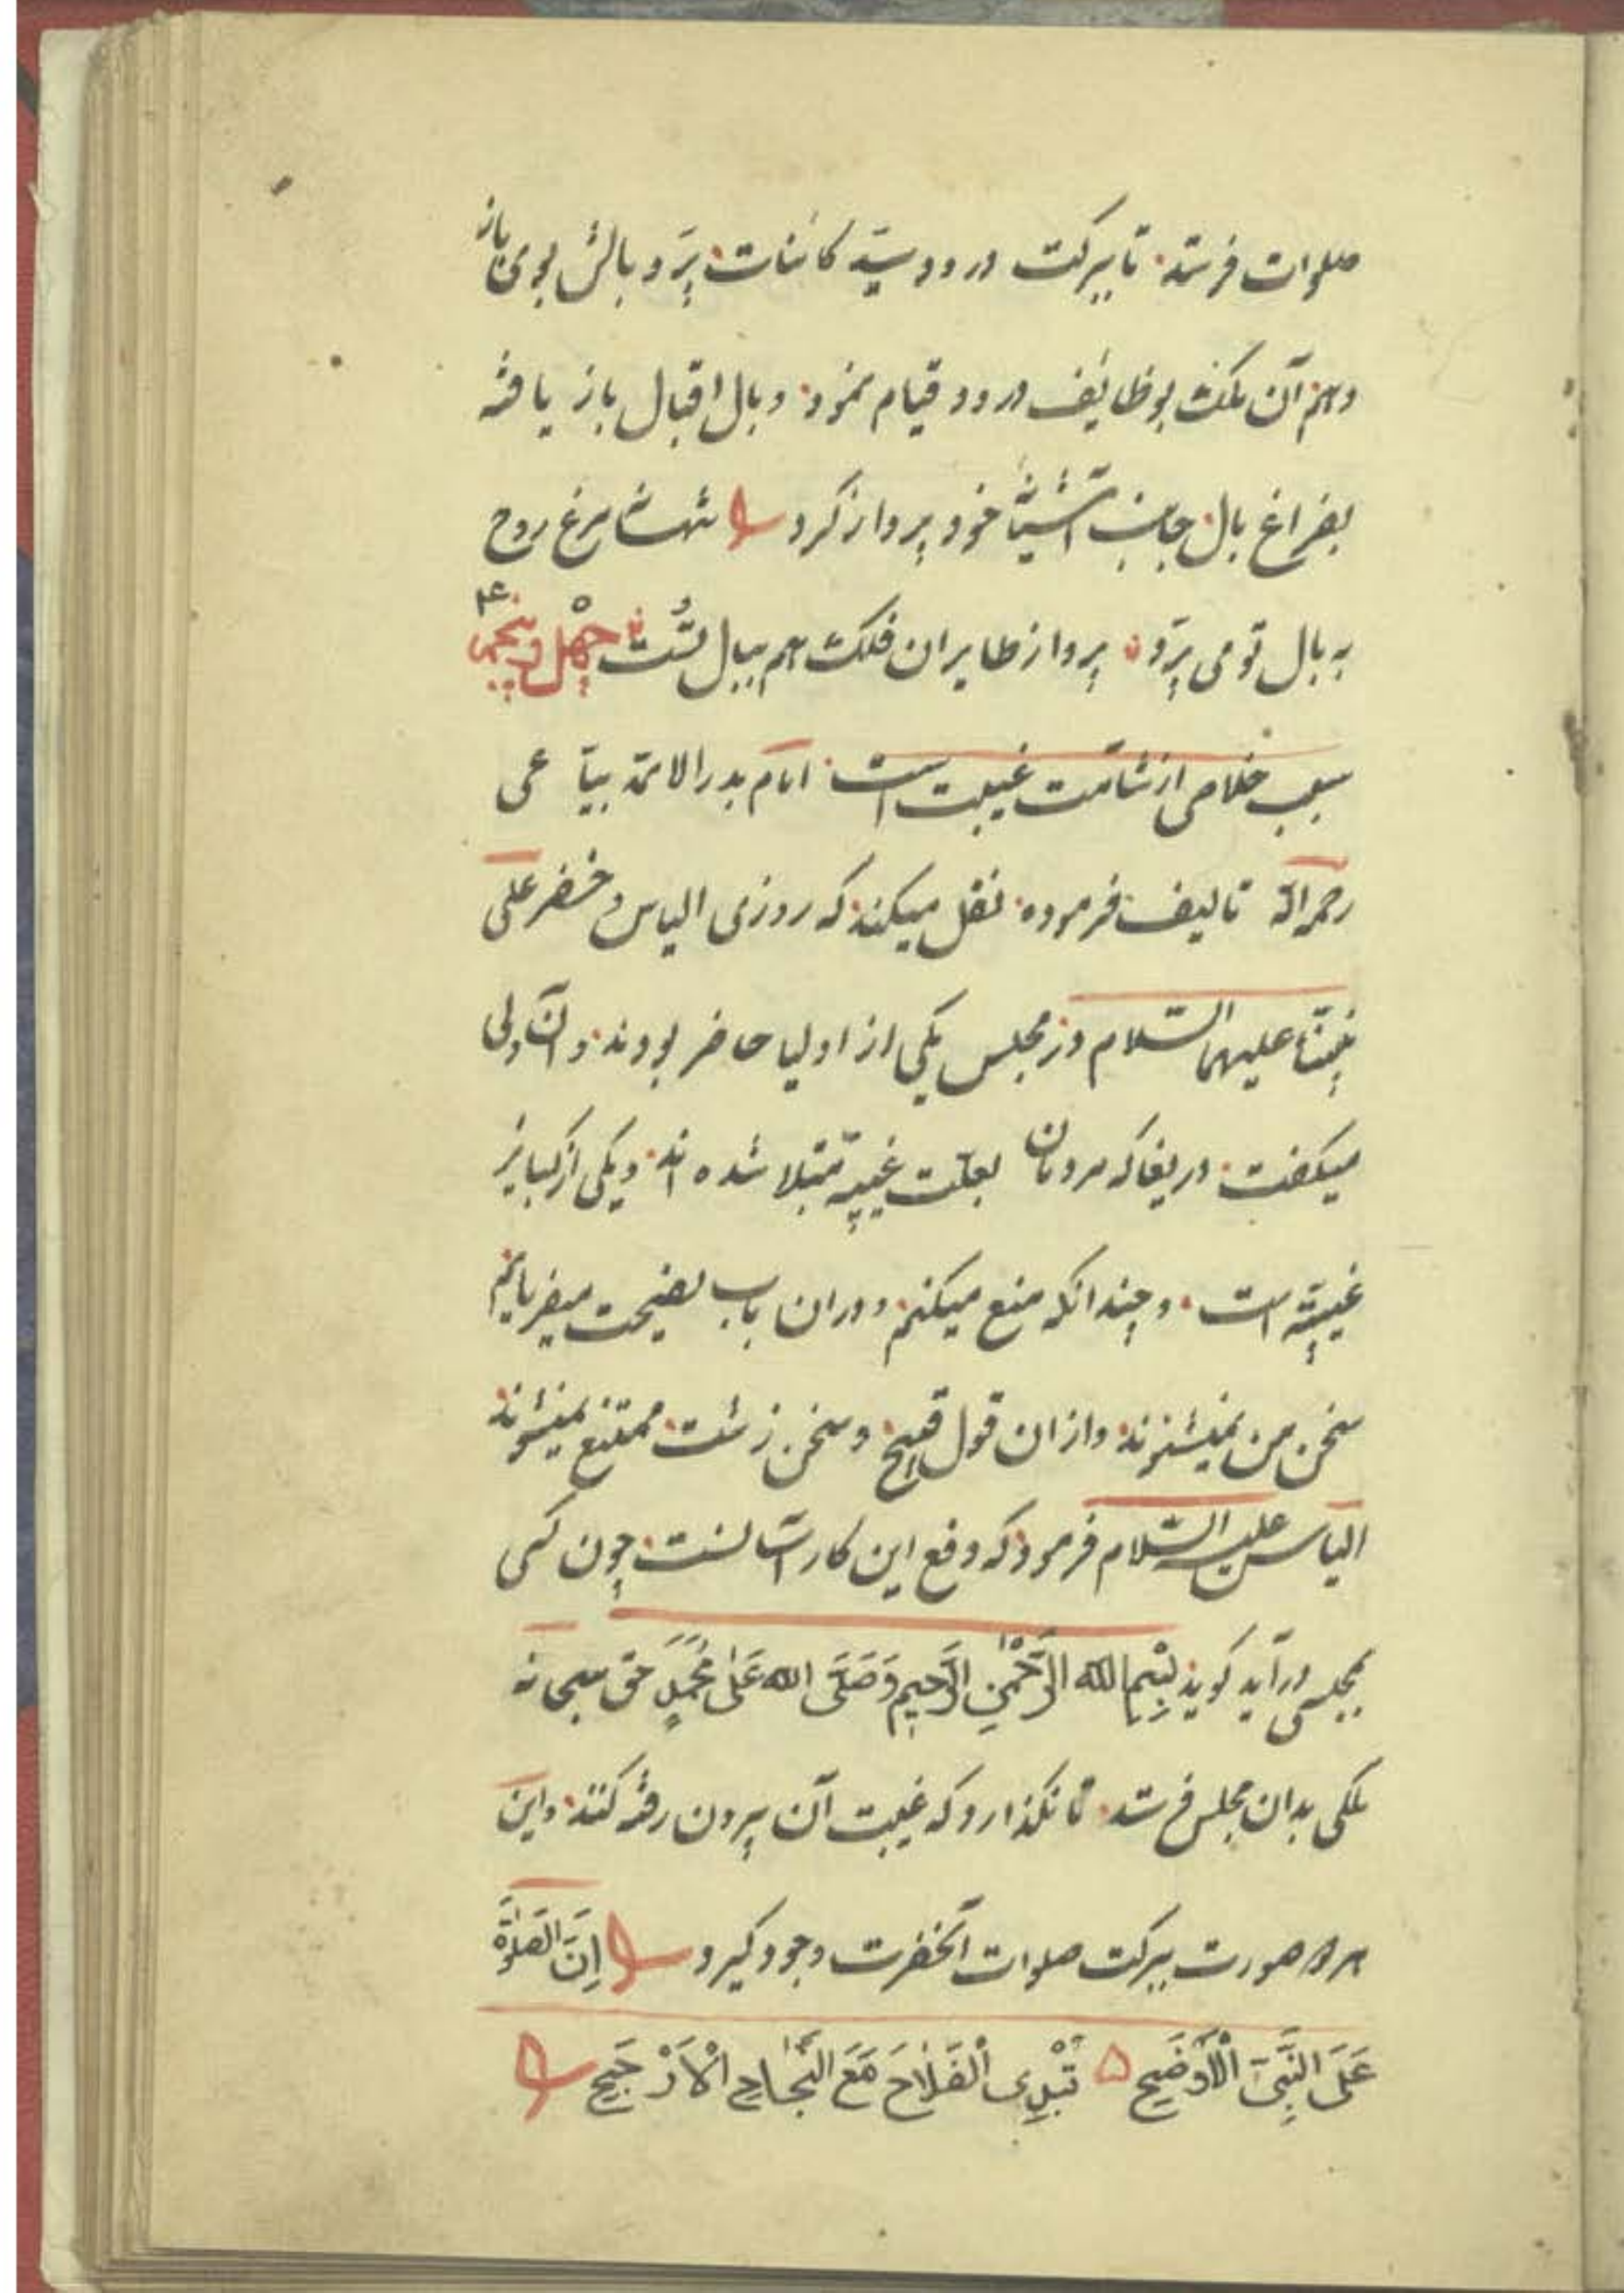 صلوات فرستد تا ببرکت درود سیّد کائنات پرّ و بالش بوی باز
دهم آن ملک بوظائف درود قیام نمود و بال اقبال باز یافته
بفراغ بال جانب آشیان خود پرواز کرد تنها نه مرغ روح
به بال تو می پرّد پرواز طایران فلک هم ببال تُست چهل و پنجم
سبب خلاصی از شآمت غیبت است امام بدر الائمه بیاعی
رحمه الله تالیف فرموده نقل میکند که روزی الیاس و خضر علی
نبیّنا علیهما السّلام در مجلس یکی از اولیا حاضر بودند و آن ولی
میکفت دریغا که مردمان بعلّت غیبة مبتلا شده اند و یکی از کبایر
غیبة است و چندانکه منع میکنم و دران باب نصیحت میفرمایم
سخن من نمیشنوند و ازان قول قبیح و سخن زشت ممتنع نمیشوند
الیاس علیه السّلام فرمود که دفع این کار آسانست چون کسی
بمجلسی درآید کوید بِسْمِ الله الرَّحْمٰنِ الرَّحِیمِ وَصَلَّی الله عَلٰی مُحَمَّدٍ حق سبحانه
ملکی بدان مجلس فرستد تا نکذارد که غیبت آن بیرون رفته کنند و این
هر دو صورت ببرکت صلوات آنحضرت وجود کیرد اِنَّ الصَّلوٰةَ
عَلَی النَّبِیِّ الْاَوْضَحِ تُبْدِی الْفَلَاحَ مَعَ النَّجَاحِ الْاَرْجَحِ